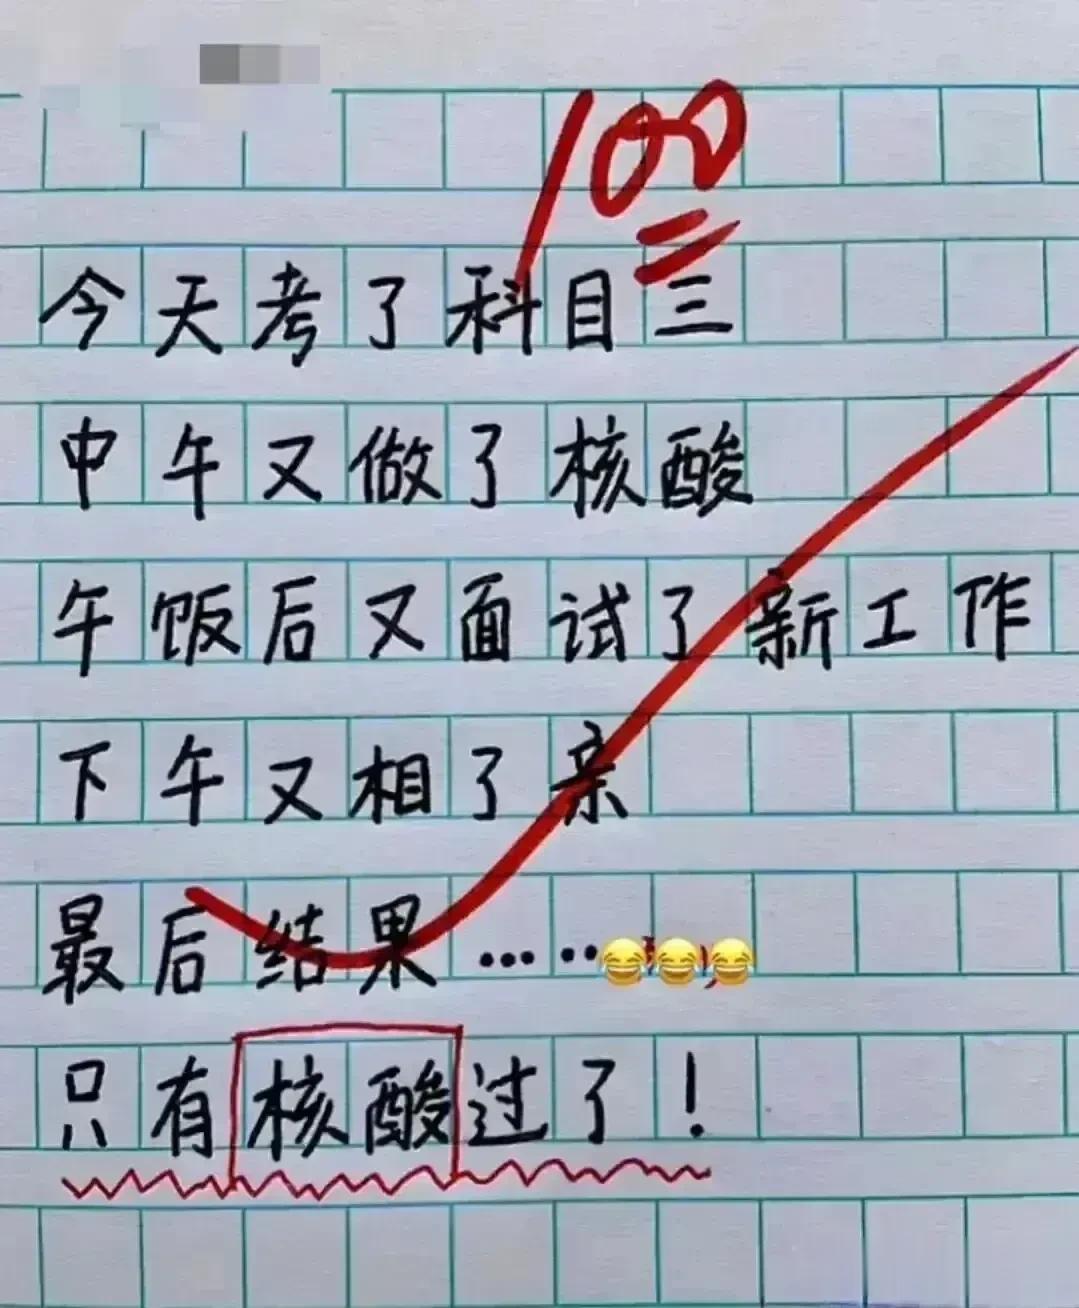 100
今天考了科目三
中午又做了核酸
午饭后又面试了新工作
下午又相了亲
最后结果……😂😂😂
只有核酸过了！